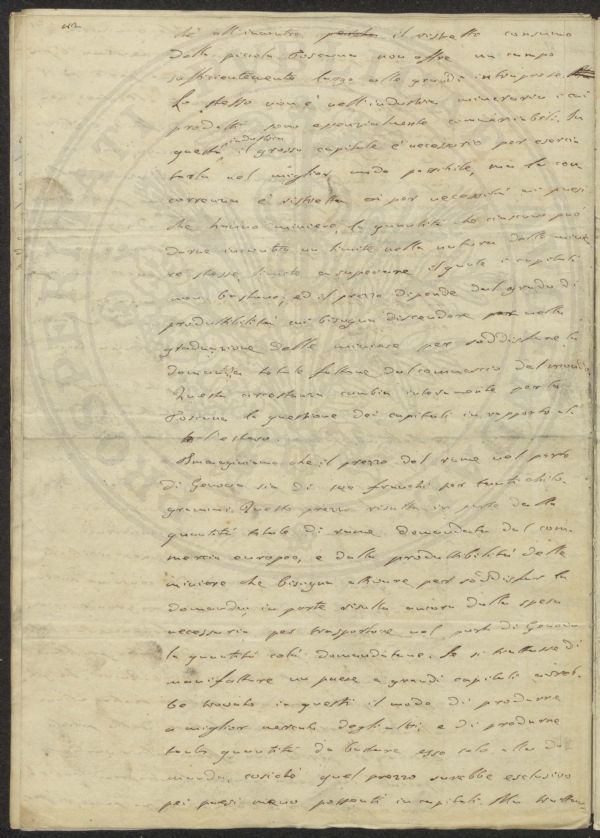 42
che all'incontro perchè il ristretto consumo
della piccola Toscana non offre un campo
sufficientemente largo alle grandi intraprese.
Lo stesso non è nell'industria mineraria i cui
prodotti sono essenzialmente commerciabili. In
questa industria il grosso capitale è necessario per eserci
tarla nel miglior modo possibile, ma la con
correnza è ristretta per necessità ai paesi
che hanno miniere, la quantità che ciascuno può
darne incontra un limite nella natura delle minie
re stesse, limite a superare il quale i capitali
non bastano; ed il prezzo dipende dal grado di
produttibilità cui bisogna discendere nella
graduazione delle miniere per soddisfare la
domanda totale fattane dal commercio del mondo.
Questa circostanza cambia interamente per la
Toscana la questione dei capitali in rapporto al
l'estero.
Immaginiamo che il prezzo del rame nel porto
di Genova sia di franchi per tanti chilo
grammi. Questo prezzo risulta in parte dalla
quantità totale di rame domandata dal com
mercio europeo, e dalla produttibilità delle
miniere che bisogna attivare per soddisfar la
domanda; in parte risulta ancora dalla spesa
necessaria per trasportare nel porto di Genova
la quantità colà domandatane. Se si trattasse di
manifatture un paese a grandi capitali avreb
be trovato in questi il modo di produrre
a miglior mercato degli altri, e di produrne
tanta quantità da bastare esso solo alla do
manda, cosichè quel prezzo sarebbe esclusivo
pei paesi meno possenti in capitali. Ma trattan
PROSPERITATI